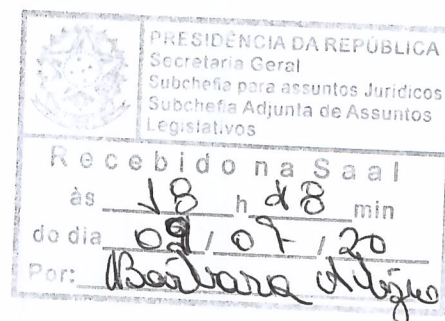 PRESIDÊNCIA DA REPÚBLICA
Secretaria Geral
Subchefia para assuntos Jurídicos
Subchefia Adjunta de Assuntos
Legislativos
Recebido na Saal
às 18 h 28 min
do dia 09 / 07 / 20
Por: Barbara